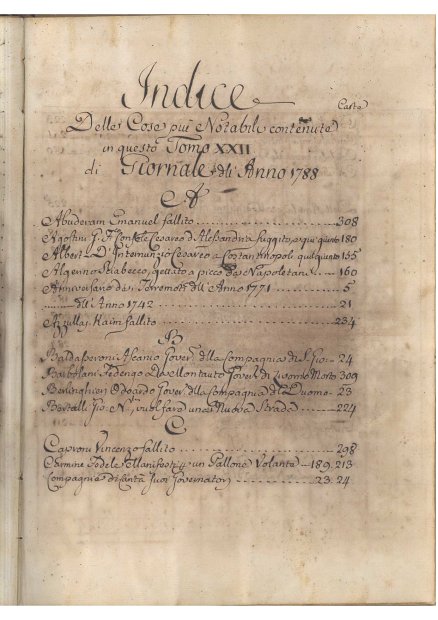 Indice
Carte
Delle Cose più Notabili contenute
in questo Tomo XXII
di Giornale dell'Anno 1788
A
Abuderam Emanuel fallito 308
Agostini Console Cesareo d'Alessandria fuggito, e qui giunto 180
Albert D' Internunzio Cesareo a Costantinopoli qui giunto 155
Algerino Sciabecco, gettato a picco da Napoletani 160
Anniversario di Terremoti dell'Anno 1771 5
dell'Anno 1742 21
Azzulay Kaim fallito 234
B
Baldasseroni Ascanio Gover. della Compagnia di S. Gio. 24
Barbolani Federigo Da Montauto Gover. di Livorno Morto 309
Berlinghieri Odoardo Gover. della Compagnia del Duomo 23
Bertolli Gio. vuol fare una Nuova Strada 224
C
Caproni Vincenzo fallito 298
Carmine Fedele un Pallone Volante 189. 213
Compagnie di Carità Suoi Governatori 23. 24